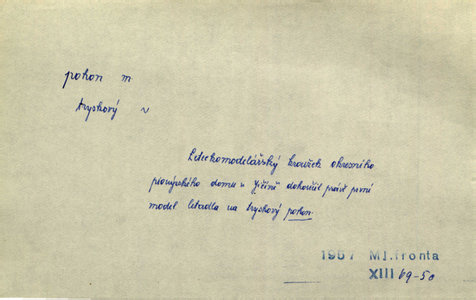 pohon m
tryskový v
Leteckomodelářský kroužek okresního
pionýrského domu v Jičíně dokončil právě první
model letadla na tryskový pohon.
1957 Ml.fronta
XIII 69-50